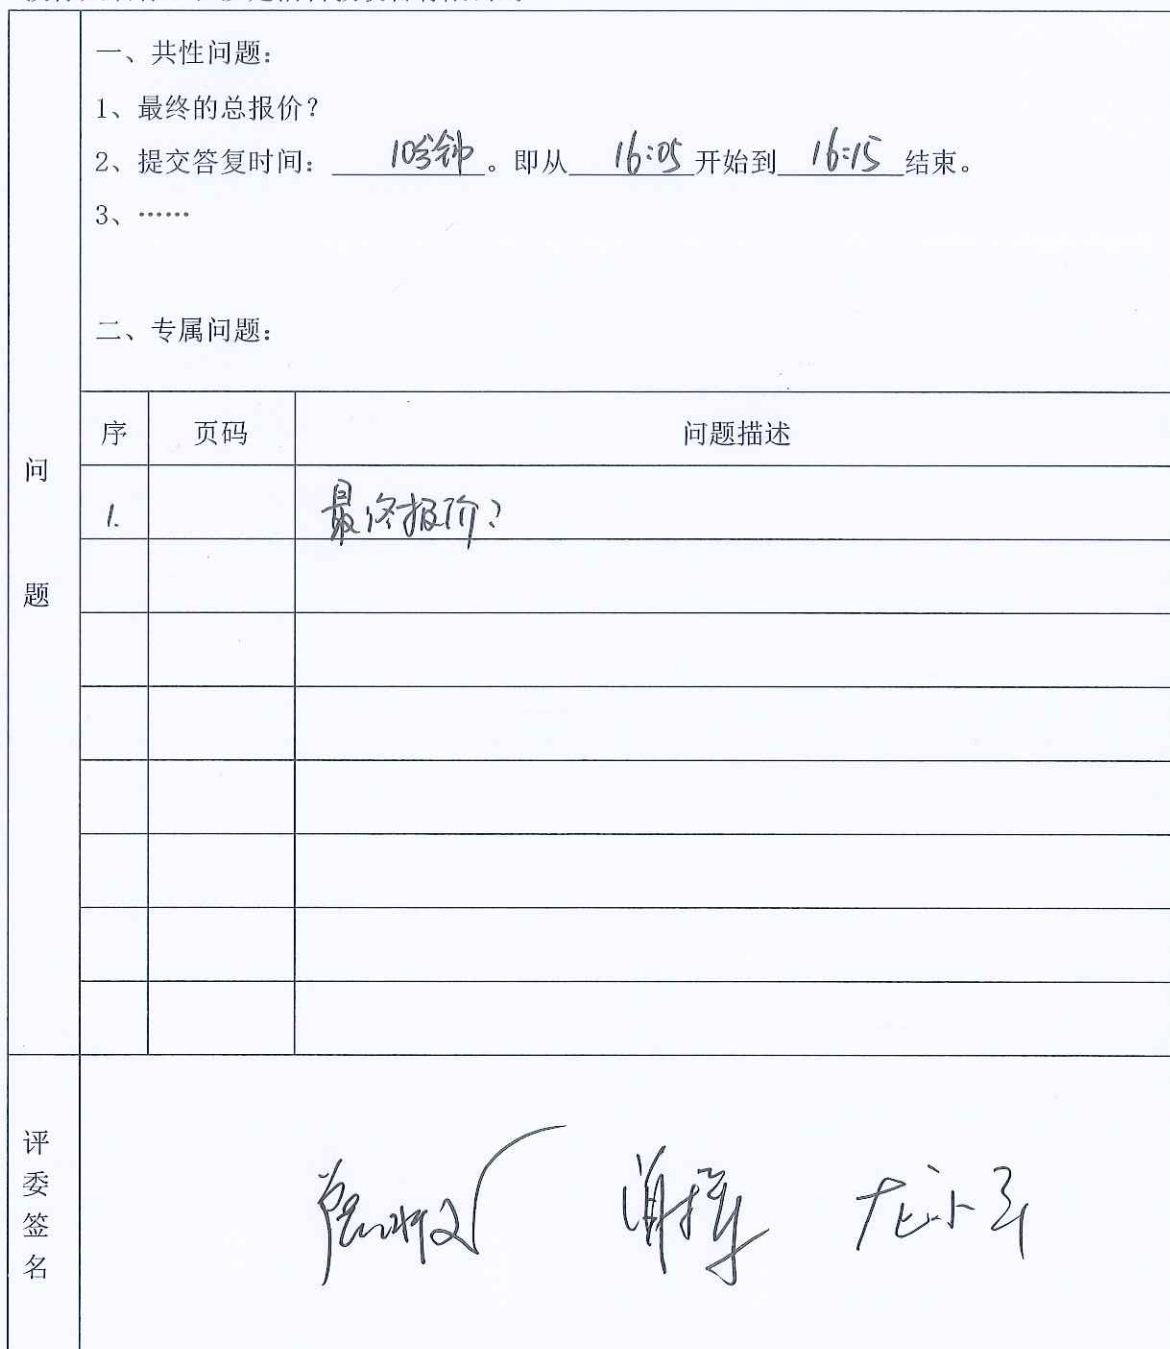 一、共性问题：
1、最终的总报价？
2、提交答复时间：10分钟。即从16:05开始到16:15结束。
3、……
二、专属问题：
序 页码 问题描述
问题
1. 最终报价？
评委签名